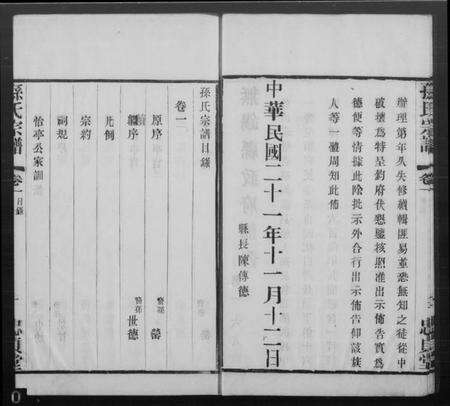 孫氏宗譜 卷一
辦理第年久失修續輯匪易並恐無知之徒從中
破壞爲特呈鈞府伏懇鑒核熙准出示佈告實爲
德便等情據此除批示外合行出示佈告仰該族
人等一體周知此佈
縣長陳傳德
中華民國二十一年十一月十二日
孫氏宗譜目錄
卷一
原序
續序
凡例
宗約
祠規
怡亭公家訓
裔孫 馨
裔孫 世德
孫氏宗譜 卷一 目錄 一 忠貞堂